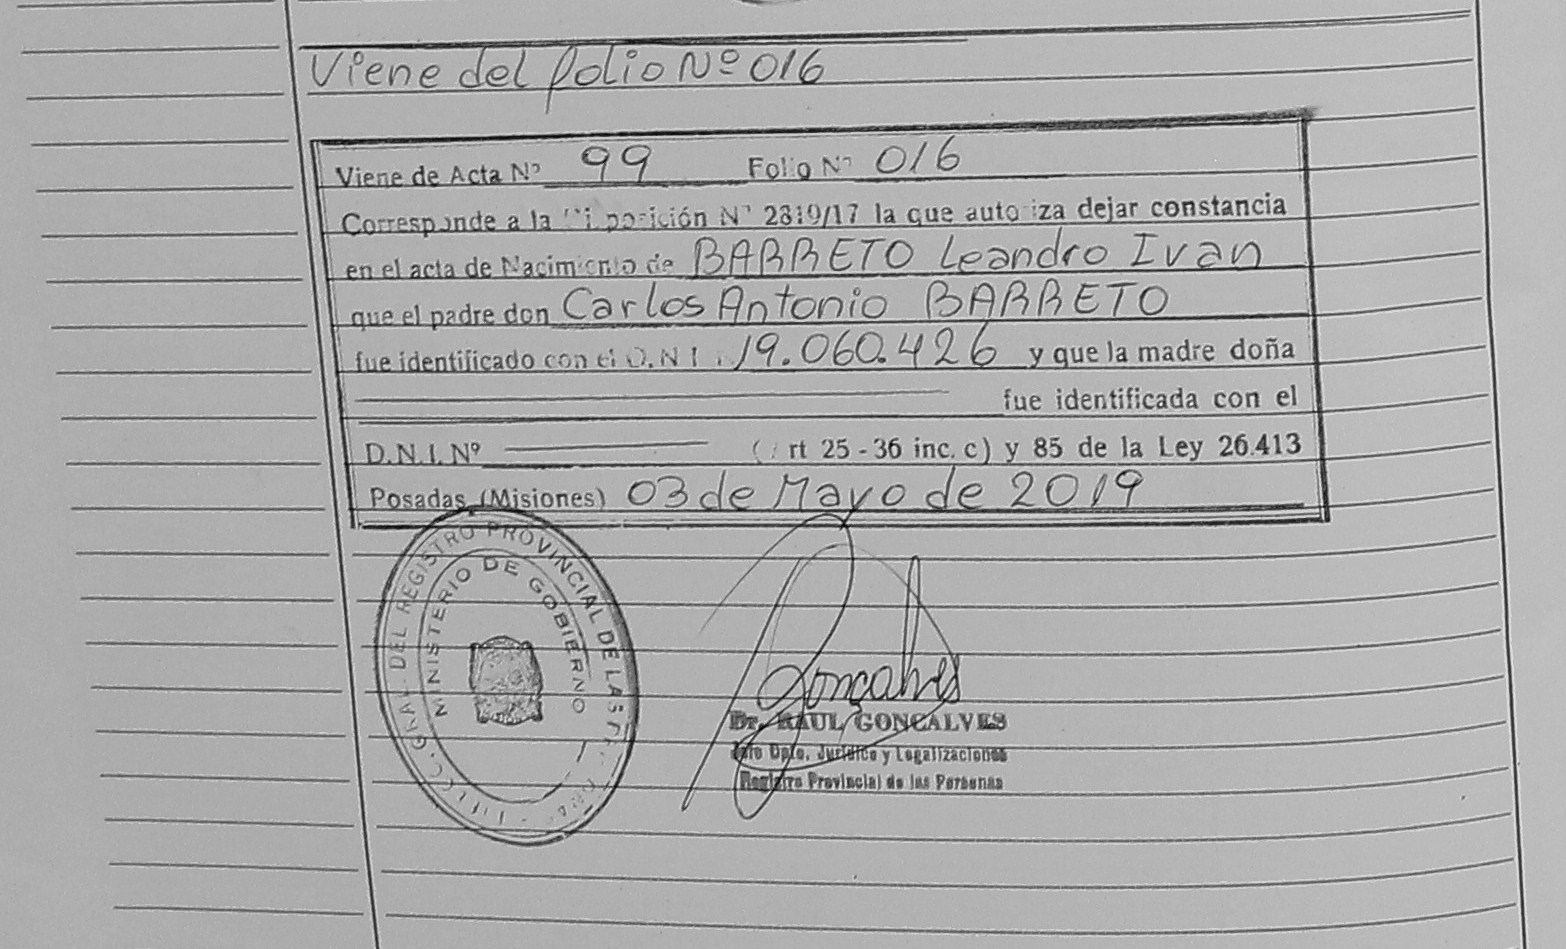 Viene del folio Nº 016
Viene de Acta Nº 99 Folio Nº 016
Corresponde a la Disposición Nº 2819/17 la que autoriza dejar constancia
en el acta de Nacimiento de BARRETO Leandro Ivan
que el padre don Carlos Antonio BARRETO
fue identificado con el D.N.I. 19.060.426 y que la madre doña
fue identificada con el
D.N.I. Nº (Art 25 - 36 inc. c) y 85 de la Ley 26.413
Posadas (Misiones) 03 de Mayo de 2019
DIRECC. GRAL. DEL REGISTRO PROVINCIAL DE LAS
MINISTERIO DE GOBIERNO
Goncalves
Dr. RAUL GONCALVES
Jefe Dpto. Jurídico y Legalizaciones
Registro Provincial de las Personas